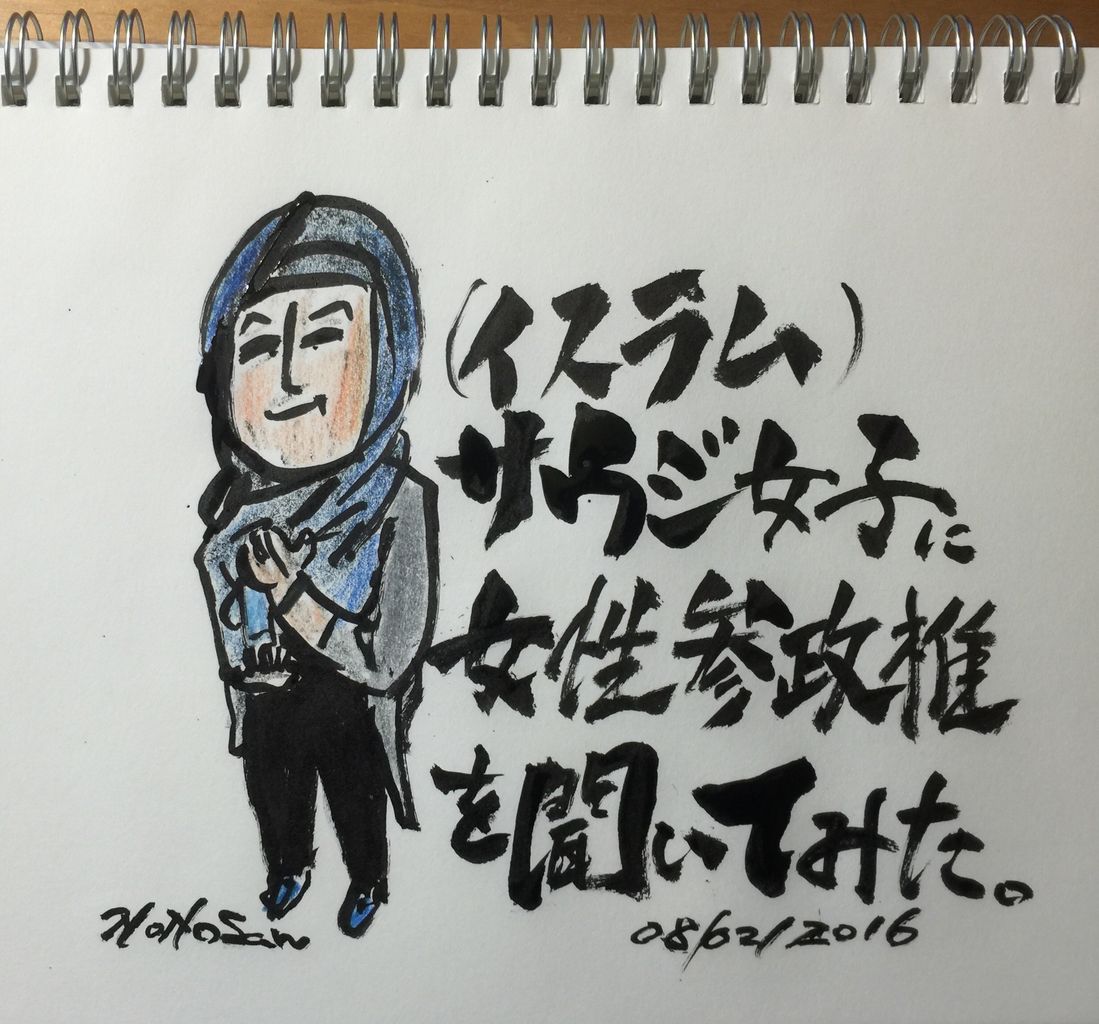 (イスラム)
サウジ女子に
女性参政権
を聞いてみた。
NoNoSan
08/02/2016